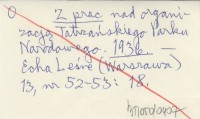 O Z prac nad organi-
zacją Tatrzańskiego Parku
Narodowego. 1936. —
Echa Leśne (Warszawa)
13, nr 52-53: 18.